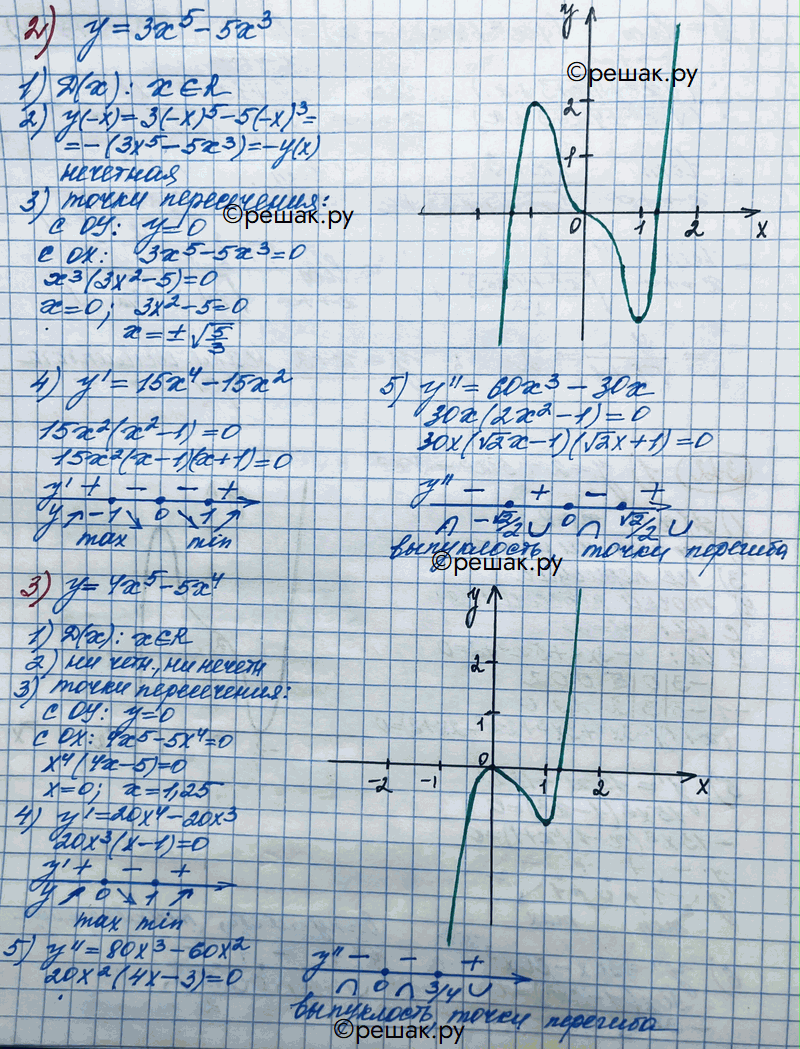 2) y = 3x⁵ - 5x³
1) D(x): x ∈ R
2) y(-x) = 3(-x)⁵ - 5(-x)³ =
= -(3x⁵ - 5x³) = -y(x)
нечетная
3) точки пересечения:
с OY: y = 0
с OX: 3x⁵ - 5x³ = 0
x³(3x² - 5) = 0
x = 0; 3x² - 5 = 0
x = ± √5/3
4) y' = 15x⁴ - 15x²
15x²(x² - 1) = 0
15x²(x - 1)(x + 1) = 0
y' + - - +
y ↗ -1 ↘ 0 ↘ 1 ↗
max min
y
2
1
0 1 2 x
©решак.ру
©решак.ру
5) y'' = 60x³ - 30x
30x(2x² - 1) = 0
30x(√2x - 1)(√2x + 1) = 0
y'' - + - +
∩ -√2/2 ∪ 0 ∩ √2/2 ∪
выпуклость, точки перегиба
©решак.ру
3) y = 4x⁵ - 5x⁴
1) D(x): x ∈ R
2) ни четн., ни нечетн
3) точки пересечения:
с OY: y = 0
с OX: 4x⁵ - 5x⁴ = 0
x⁴(4x - 5) = 0
x = 0; x = 1,25
4) y' = 20x⁴ - 20x³
20x³(x - 1) = 0
y' + - +
y ↗ 0 ↘ 1 ↗
max min
y
2
1
0
-2 -1 1 2 x
5) y'' = 80x³ - 60x²
20x²(4x - 3) = 0
y'' - - +
∩ 0 ∩ 3/4 ∪
выпуклость, точки перегиба
©решак.ру